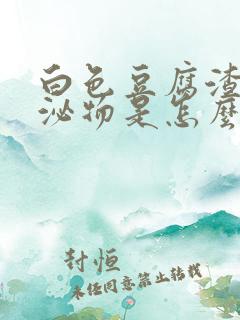 白色豆腐渣
泌物是怎麼
封恒
未经同意禁止转载